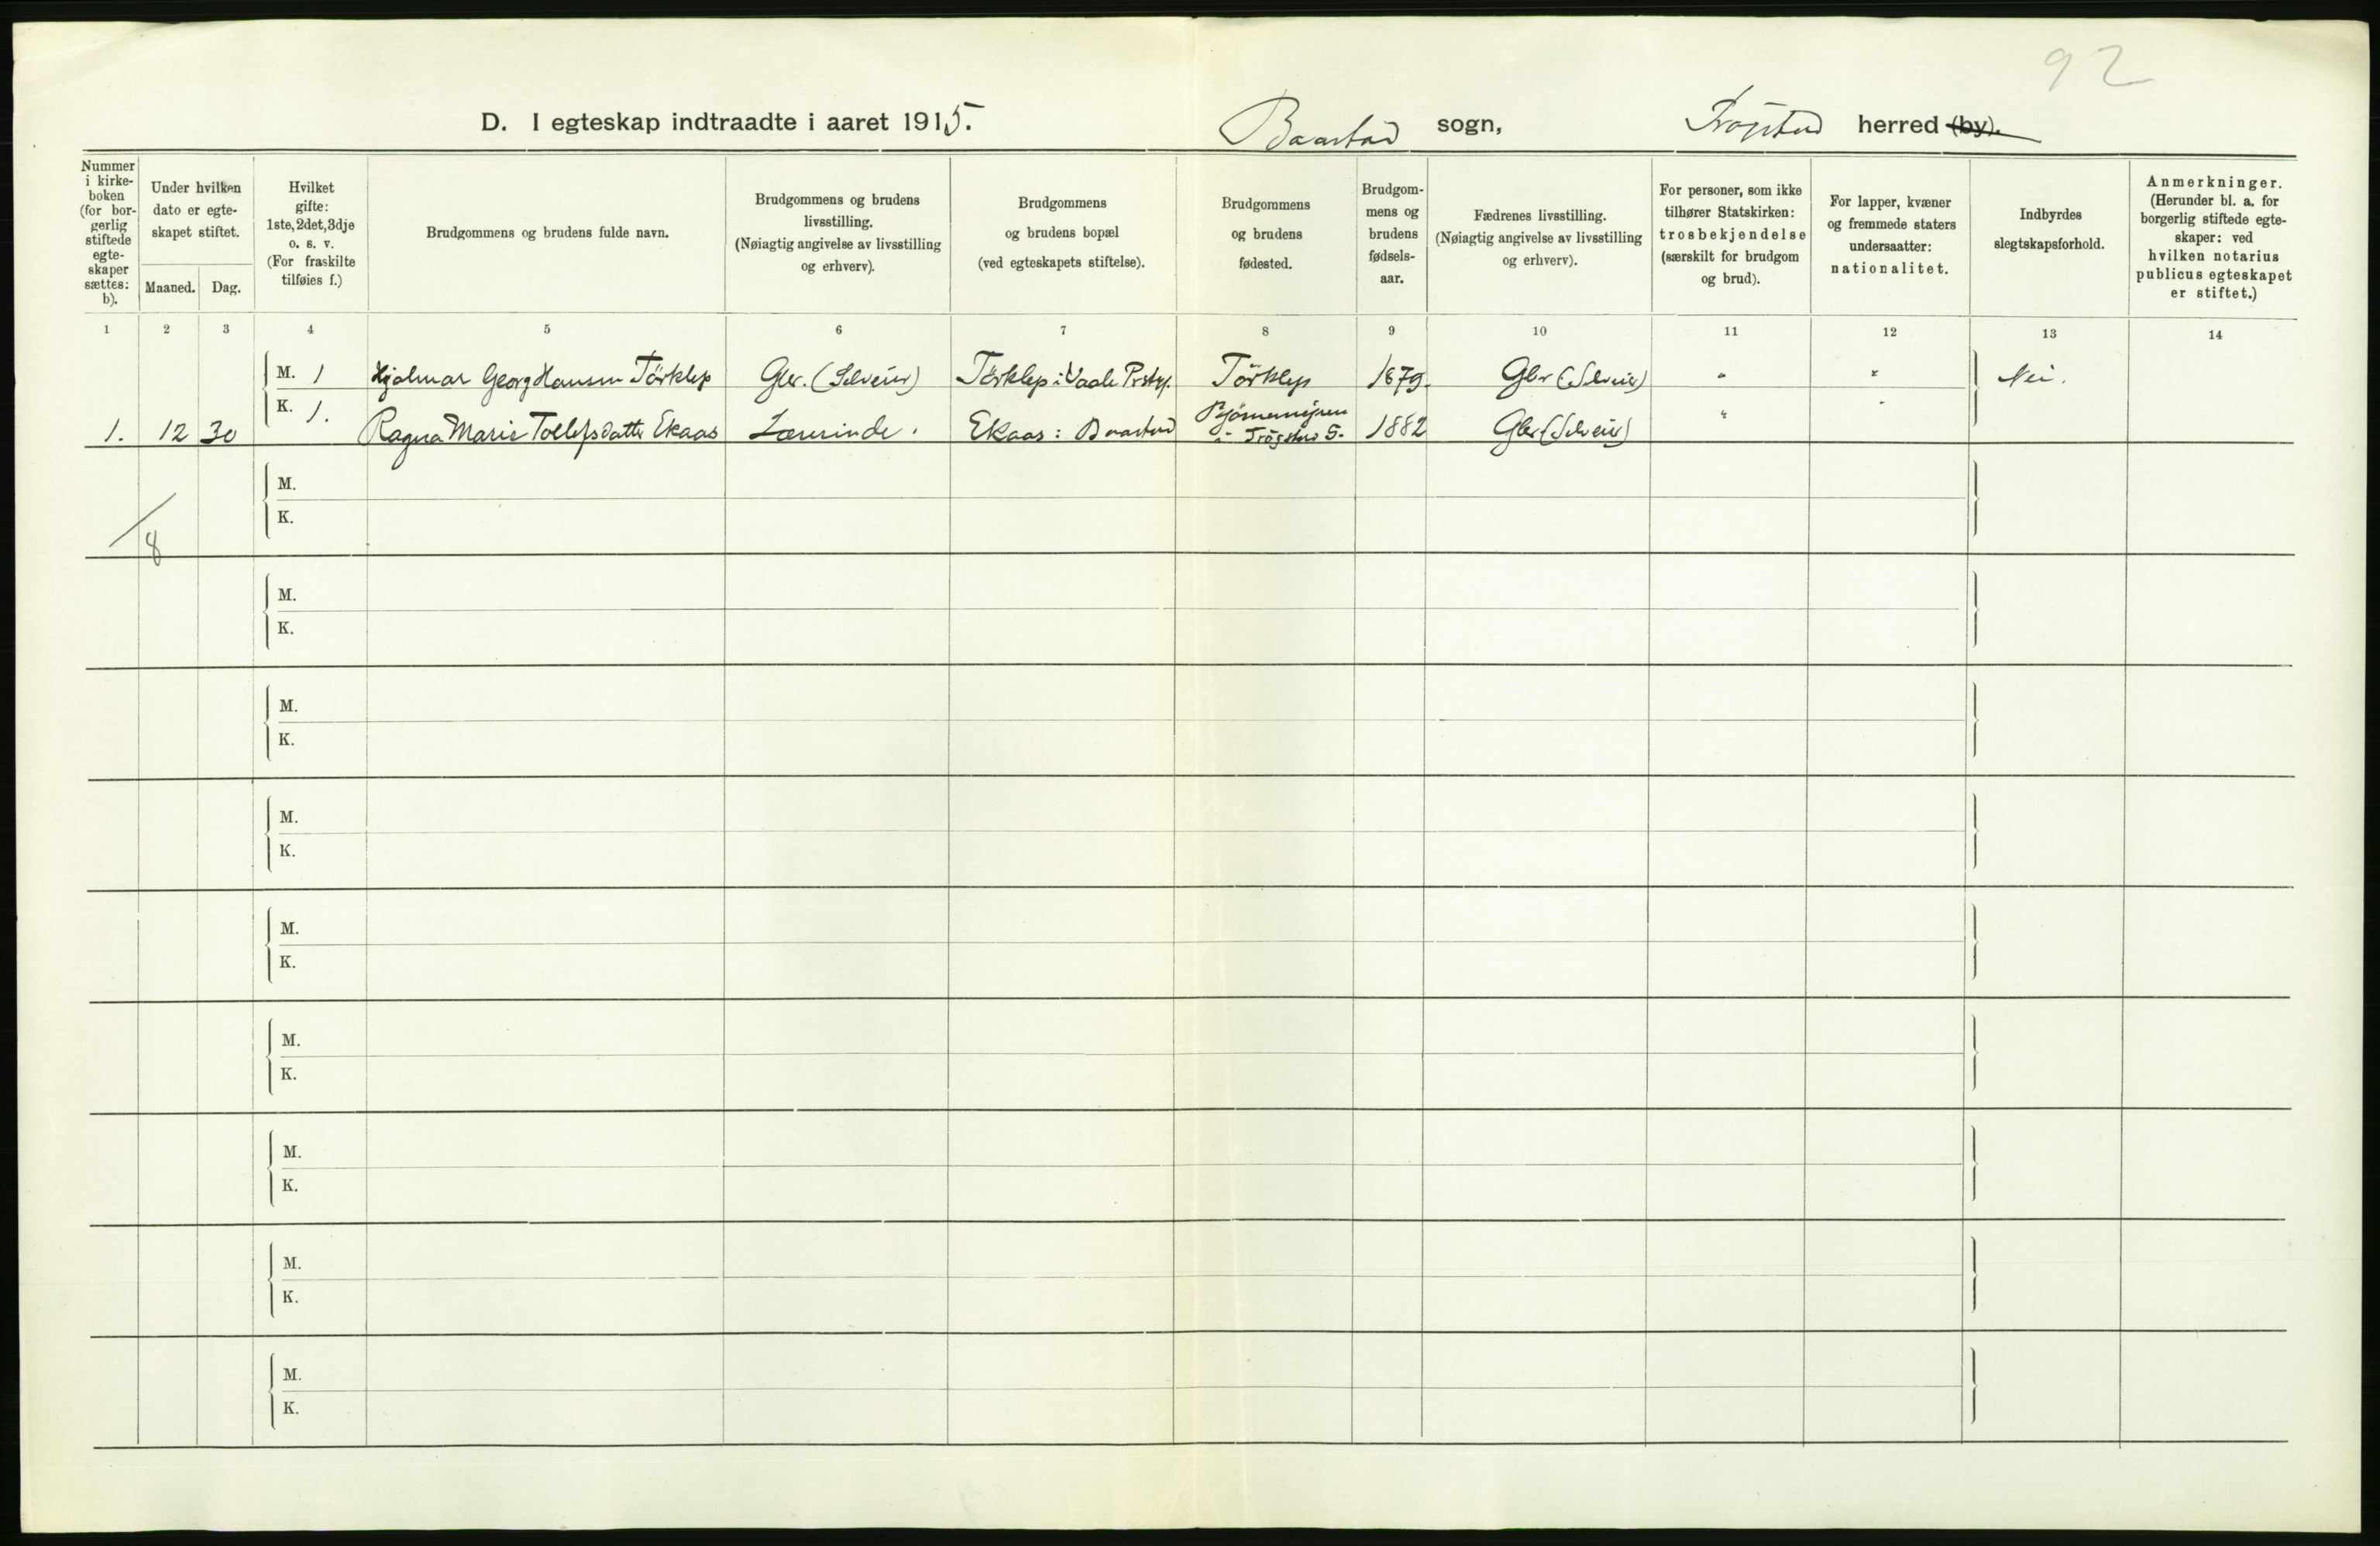 92
D. I egteskap indtraadte i aaret 1915. Baastad sogn, Trøgstad herred (by).
Nummer i kirkeboken (for borgerlig stiftede egteskaper sættes: b).
Under hvilken dato er egteskapet stiftet.
Maaned. Dag.
Hvilket gifte: 1ste, 2det, 3dje o. s. v. (For fraskilte tilføies f.)
Brudgommens og brudens fulde navn.
Brudgommens og brudens livsstilling. (Nøiagtig angivelse av livsstilling og erhverv).
Brudgommens og brudens bopæl (ved egteskapets stiftelse).
Brudgommens og brudens fødested.
Brudgommens og brudens fødselsaar.
Fædrenes livsstilling. (Nøiagtig angivelse av livsstilling og erhverv).
For personer, som ikke tilhører Statskirken: trosbekjendelse (særskilt for brudgom og brud).
For lapper, kvæner og fremmede staters undersaatter: nationalitet.
Indbyrdes slegtskapsforhold.
Anmerkninger. (Herunder bl. a. for borgerlig stiftede egteskaper: ved hvilken notarius publicus egteskapet er stiftet.)
1 2 3 4 5 6 7 8 9 10 11 12 13 14
M. 1 Hjalmar Georg Hansen Törklep Gbr. (Selveier) Törklep i Vaale Prstgj. Törklep 1879. Gbr (Selveier) " " Nei.
1. 12 30 K. 1. Ragna Marie Tollefsdatter Ekaas Lærerinde. Ekaas i Baastad i Trögstad S. 1882 Gbr (Selveier) " "
M.
K.
1/8
M.
K.
M.
K.
M.
K.
M.
K.
M.
K.
M.
K.
M.
K.
M.
K.